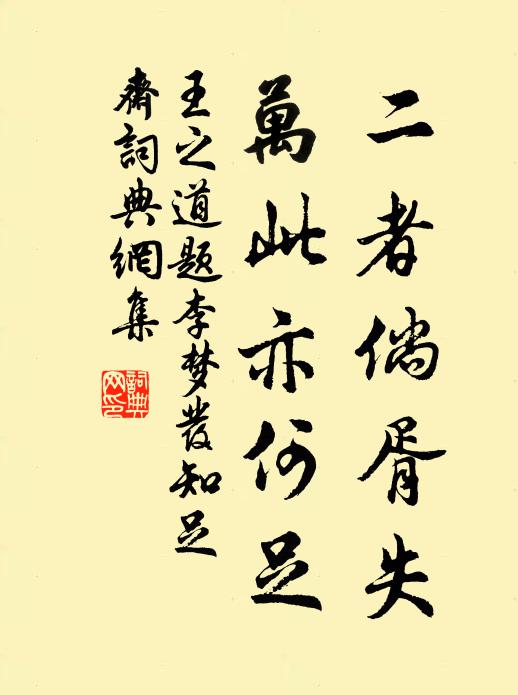 二者倘胥失
萬此亦何足
王之道題李梦發知足
齋詞典網集
詞典网印